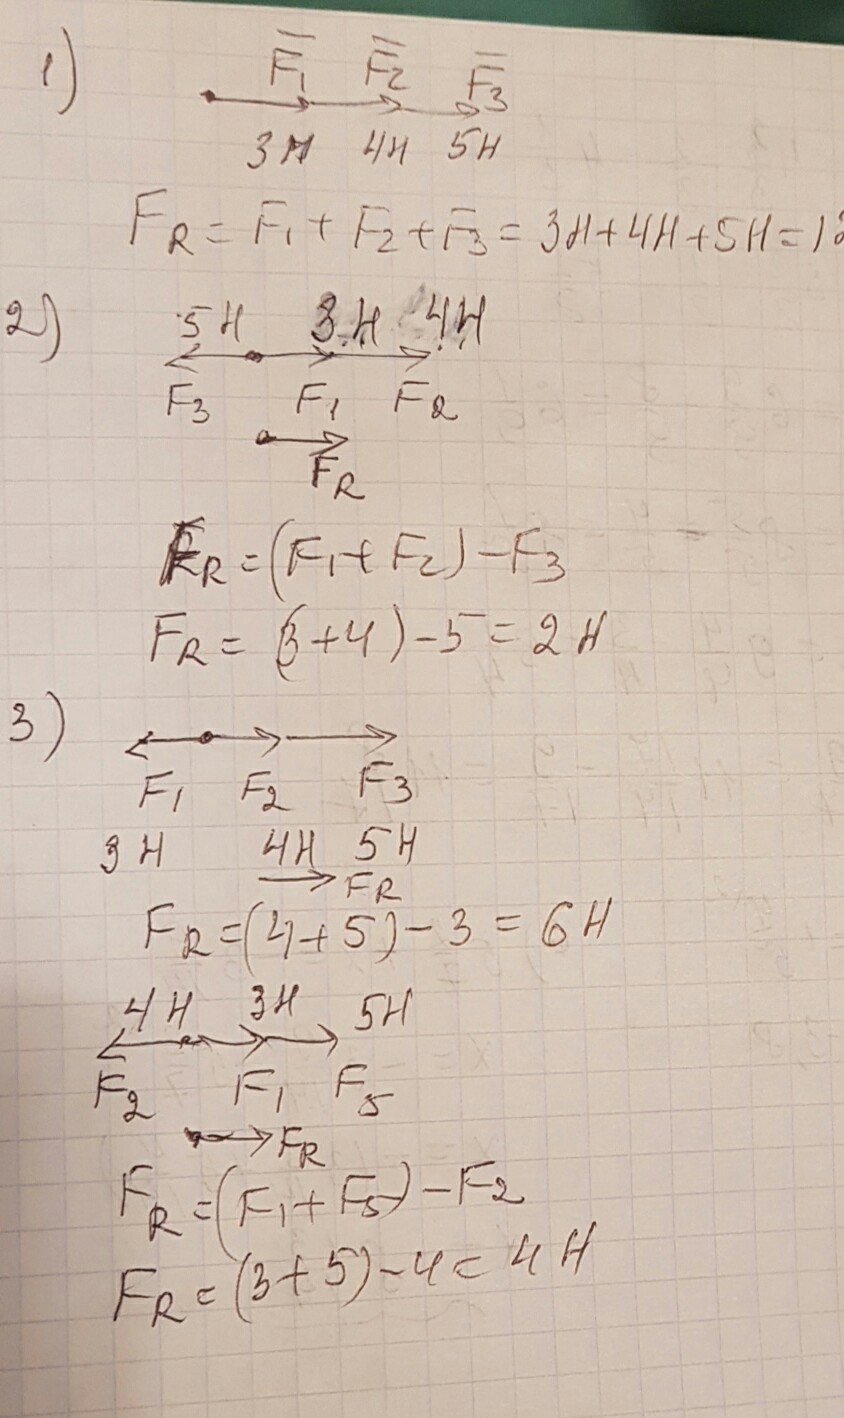 1)
F̅₁ F̅₂ F̅₃
3Н 4Н 5Н
F_R = F₁ + F₂ + F₃ = 3Н+4Н+5Н=12
2)
5Н 3Н 4Н
F₃ F₁ F₂
F_R
F_R = (F₁+F₂)-F₃
F_R = (3+4)-5=2Н
3)
F₁ F₂ F₃
3Н 4Н 5Н
F_R
F_R=(4+5)-3=6Н
4Н 3Н 5Н
F₂ F₁ F₅
F_R
F_R=(F₁+F₅)-F₂
F_R=(3+5)-4=4Н